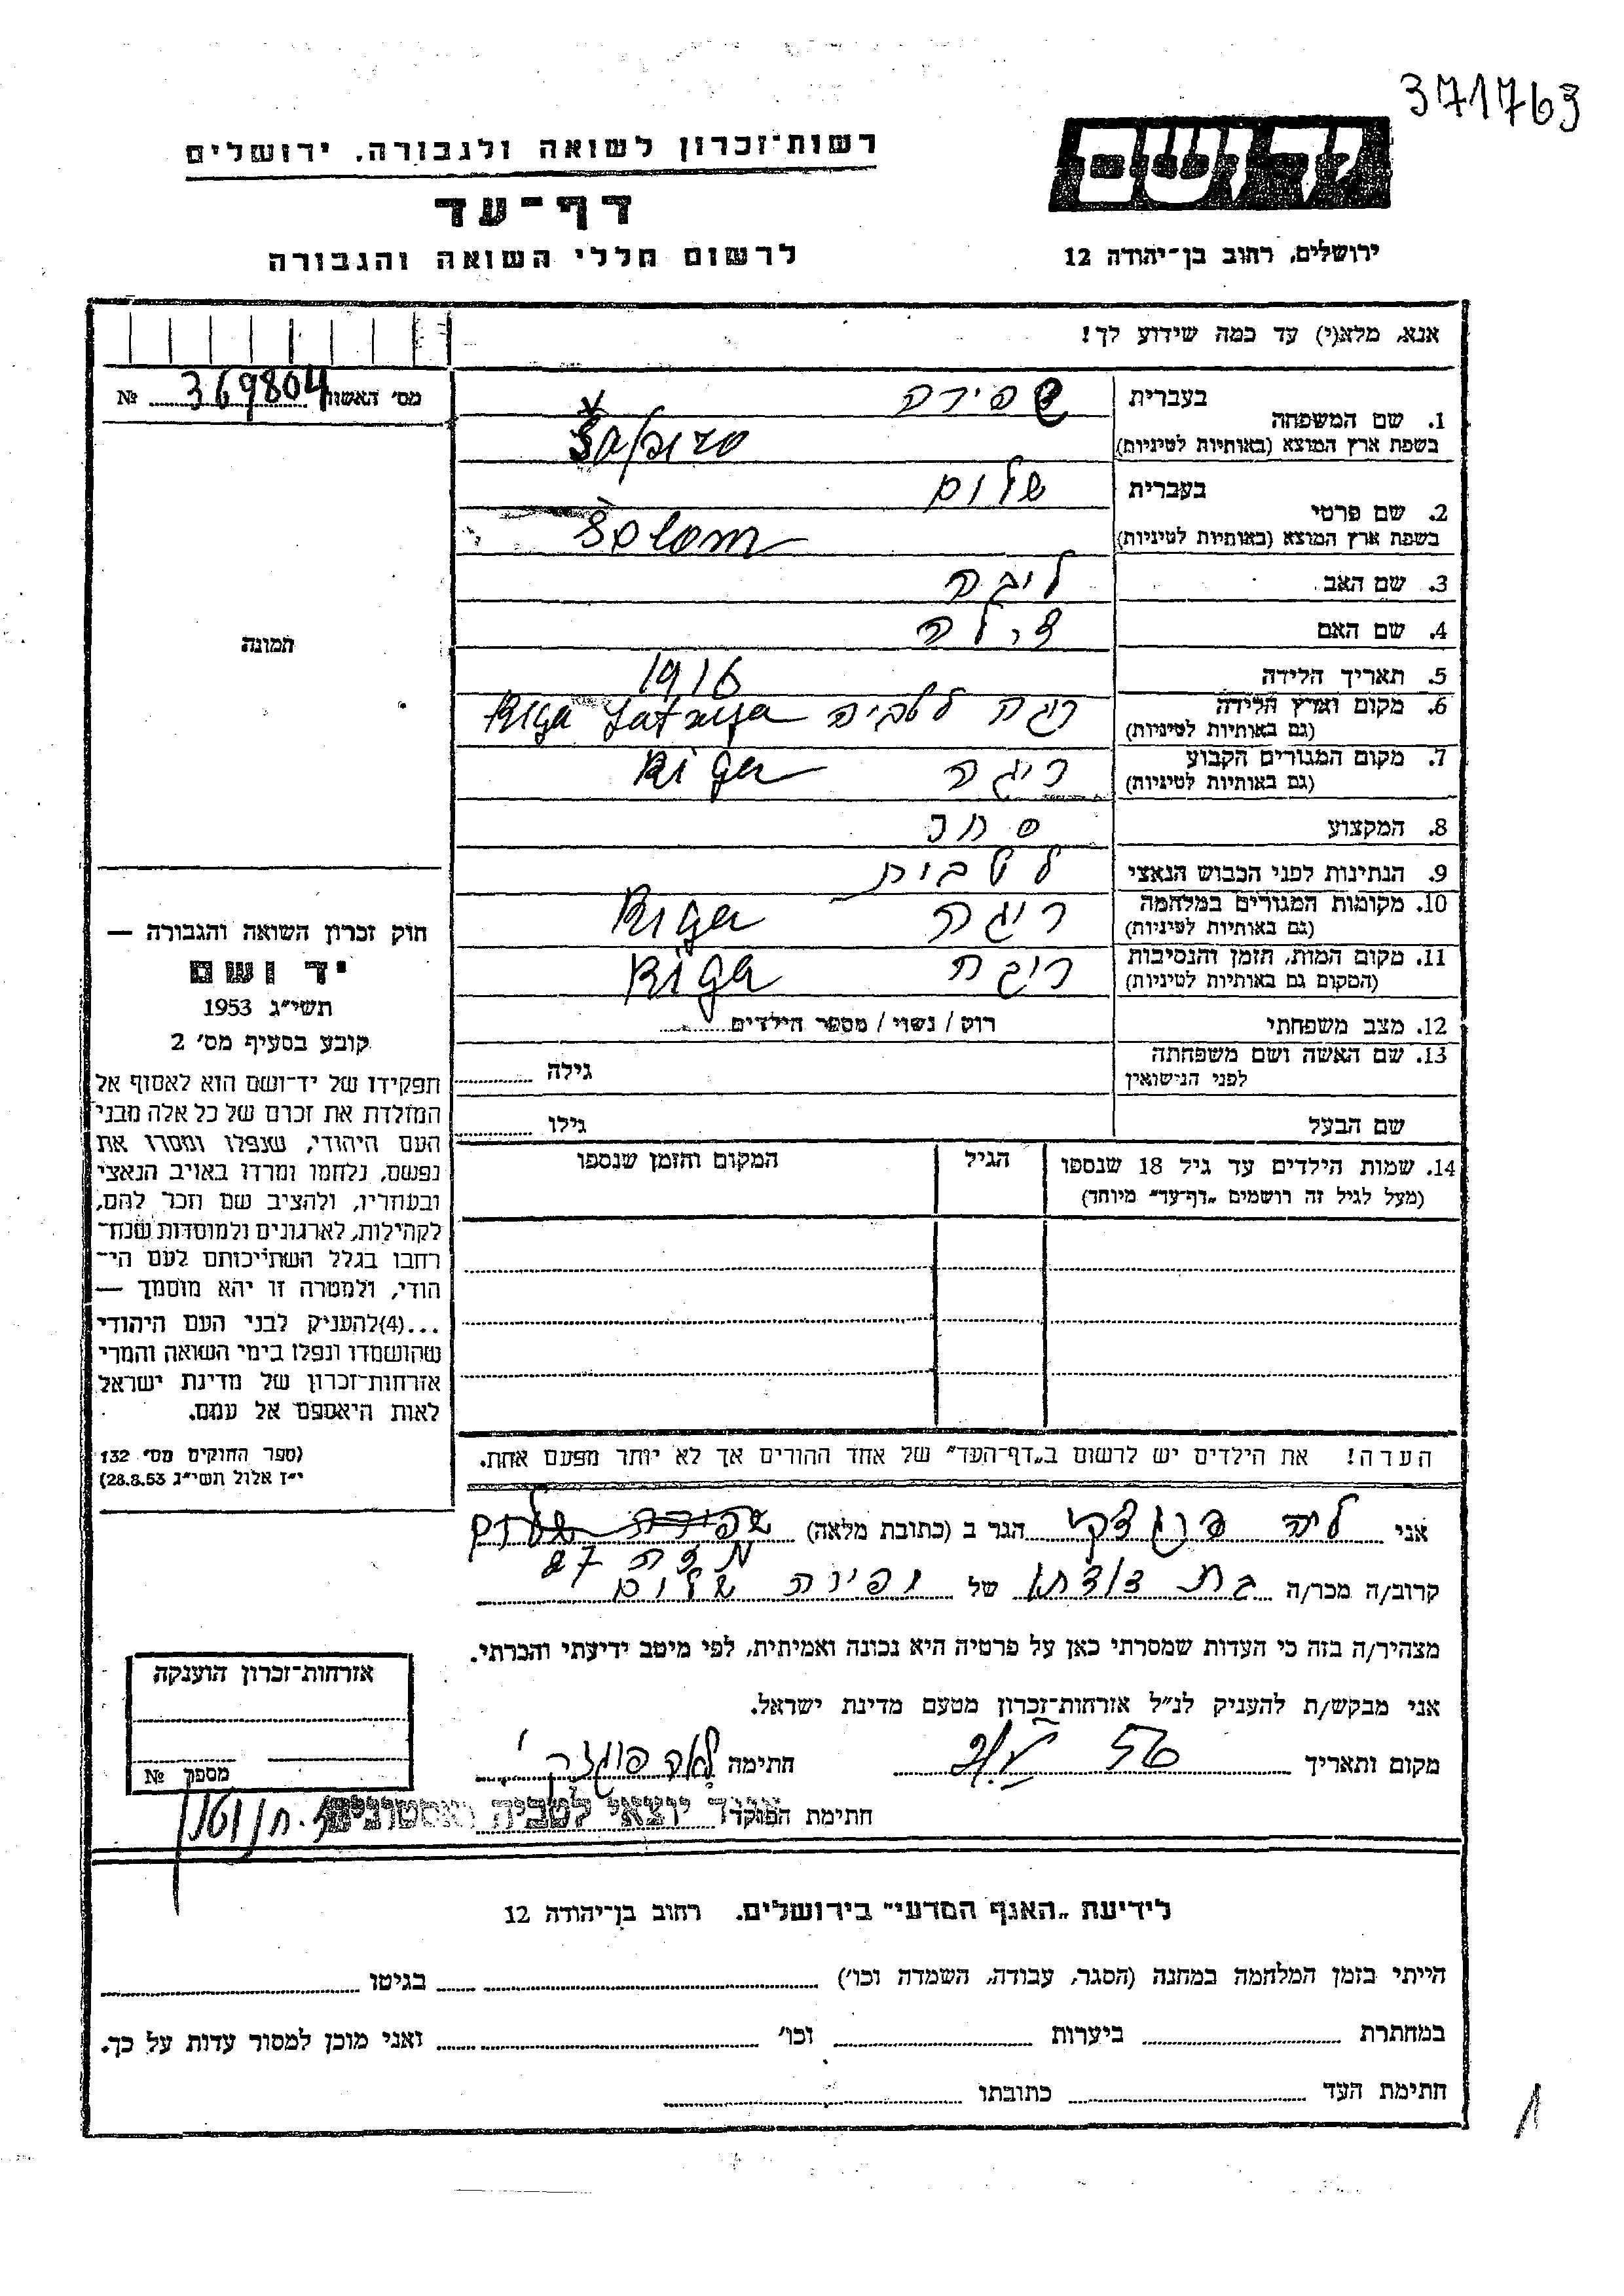 371763
רשות־זכרון לשואה ולגבורה, ירושלים
יד ושם
דף־עד
לרשום חללי השואה והגבורה
ירושלים, רחוב בן־יהודה 12
אנא, מלא(י) עד כמה שידוע לך!
מס' האשור 369804 №
1. שם המשפחה בעברית שפירה
בשפת ארץ המוצא (באותיות לטיניות) Šapiro
2. שם פרטי בעברית שלום
בשפת ארץ המוצא (באותיות לטיניות) Šolom
3. שם האב ליבה
4. שם האם
תמונה
5. תאריך הלידה 1916
6. מקום וארץ הלידה ריגה לטביה Riga Latvija
(גם באותיות לטיניות)
7. מקום המגורים הקבוע ריגה Riga
(גם באותיות לטיניות)
8. המקצוע סוחר
9. הנתינות לפני הכבוש הנאצי לטבית
10. מקומות המגורים במלחמה ריגה Riga
(גם באותיות לטיניות)
11. מקום המות, הזמן והנסיבות ריגה Riga
(המקום גם באותיות לטיניות)
12. מצב משפחתי רוק / נשוי / מספר הילדים
13. שם האשה ושם משפחתה גילה
לפני הנישואין
שם הבעל גילו
14. שמות הילדים עד גיל 18 שנספו הגיל המקום והזמן שנספו
(מעל לגיל זה רושמים „דף־עד" מיוחד)
חוק זכרון השואה והגבורה —
יד ושם
תשי"ג 1953
קובע בסעיף מס' 2
תפקידו של יד־ושם הוא לאסוף אל
המולדת את זכרם של כל אלה מבני
העם היהודי, שנפלו ומסרו את
נפשם, נלחמו ומרדו באויב הנאצי
ובעוזריו, ולהציב שם וזכר להם,
לקהילות, לארגונים ולמוסדות שנח־
רבו בגלל השתייכותם לעם הי־
הודי, ולמטרה זו יהא מוסמך —
...(4)להעניק לבני העם היהודי
שהושמדו ונפלו בימי השואה והמרי
אזרחות־זכרון של מדינת ישראל
לאות היאספם אל עמם.
(ספר החוקים מס' 132
י"ז אלול תשי"ג 28.8.53)
הערה! את הילדים יש לרשום ב„דף־העד" של אחד ההורים אך לא יותר מפעם אחת.
אני ליה הגר ב (כתובת מלאה) שפירה שלום
27
קרוב/ה מכר/ה בת דודתו של שלום
מצהיר/ה בזה כי העדות שמסרתי כאן על פרטיה היא נכונה ואמיתית, לפי מיטב ידיעתי והכרתי.
אני מבקש/ת להעניק לנ"ל אזרחות־זכרון מטעם מדינת ישראל.
מקום ותאריך 56 חתימה
חתימת הפוקד
איגוד יוצאי לטביה ואסטוניה
אזרחות־זכרון הוענקה
מספר №
לידיעת „האגף המדעי" בירושלים, רחוב בן־יהודה 12
הייתי בזמן המלחמה במחנה (הסגר, עבודה, השמדה וכו') בגיטו
במחתרת ביערות וכו' ואני מוכן למסור עדות על כך.
חתימת העד כתובתו
1